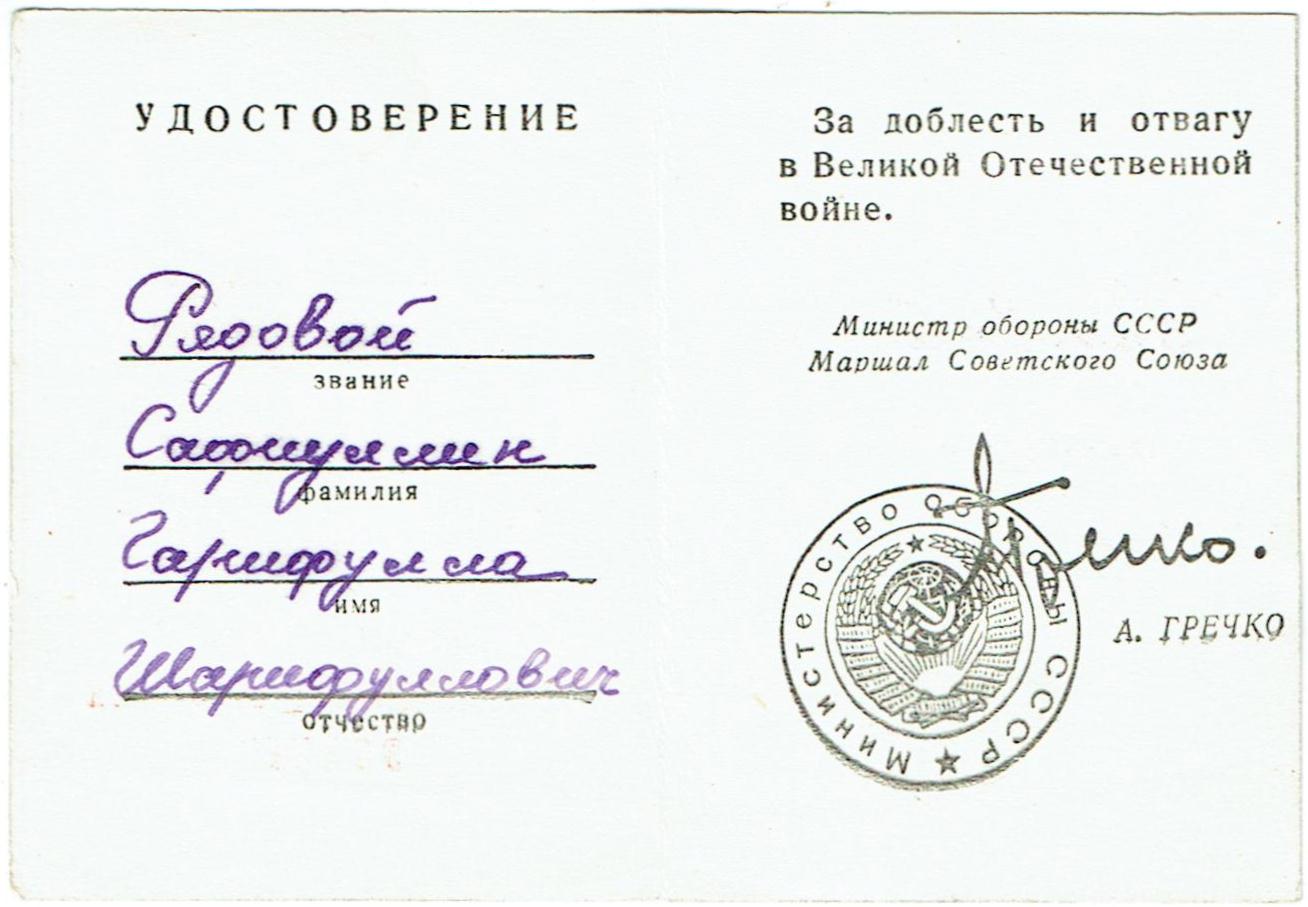 УДОСТОВЕРЕНИЕ
Рядовой
звание
Сафиуллин
фамилия
Гарифулла
имя
Шарифуллович
отчество
За доблесть и отвагу
в Великой Отечественной
войне.
Министр обороны СССР
Маршал Советского Союза
Министерство Обороны СССР
А. ГРЕЧКО